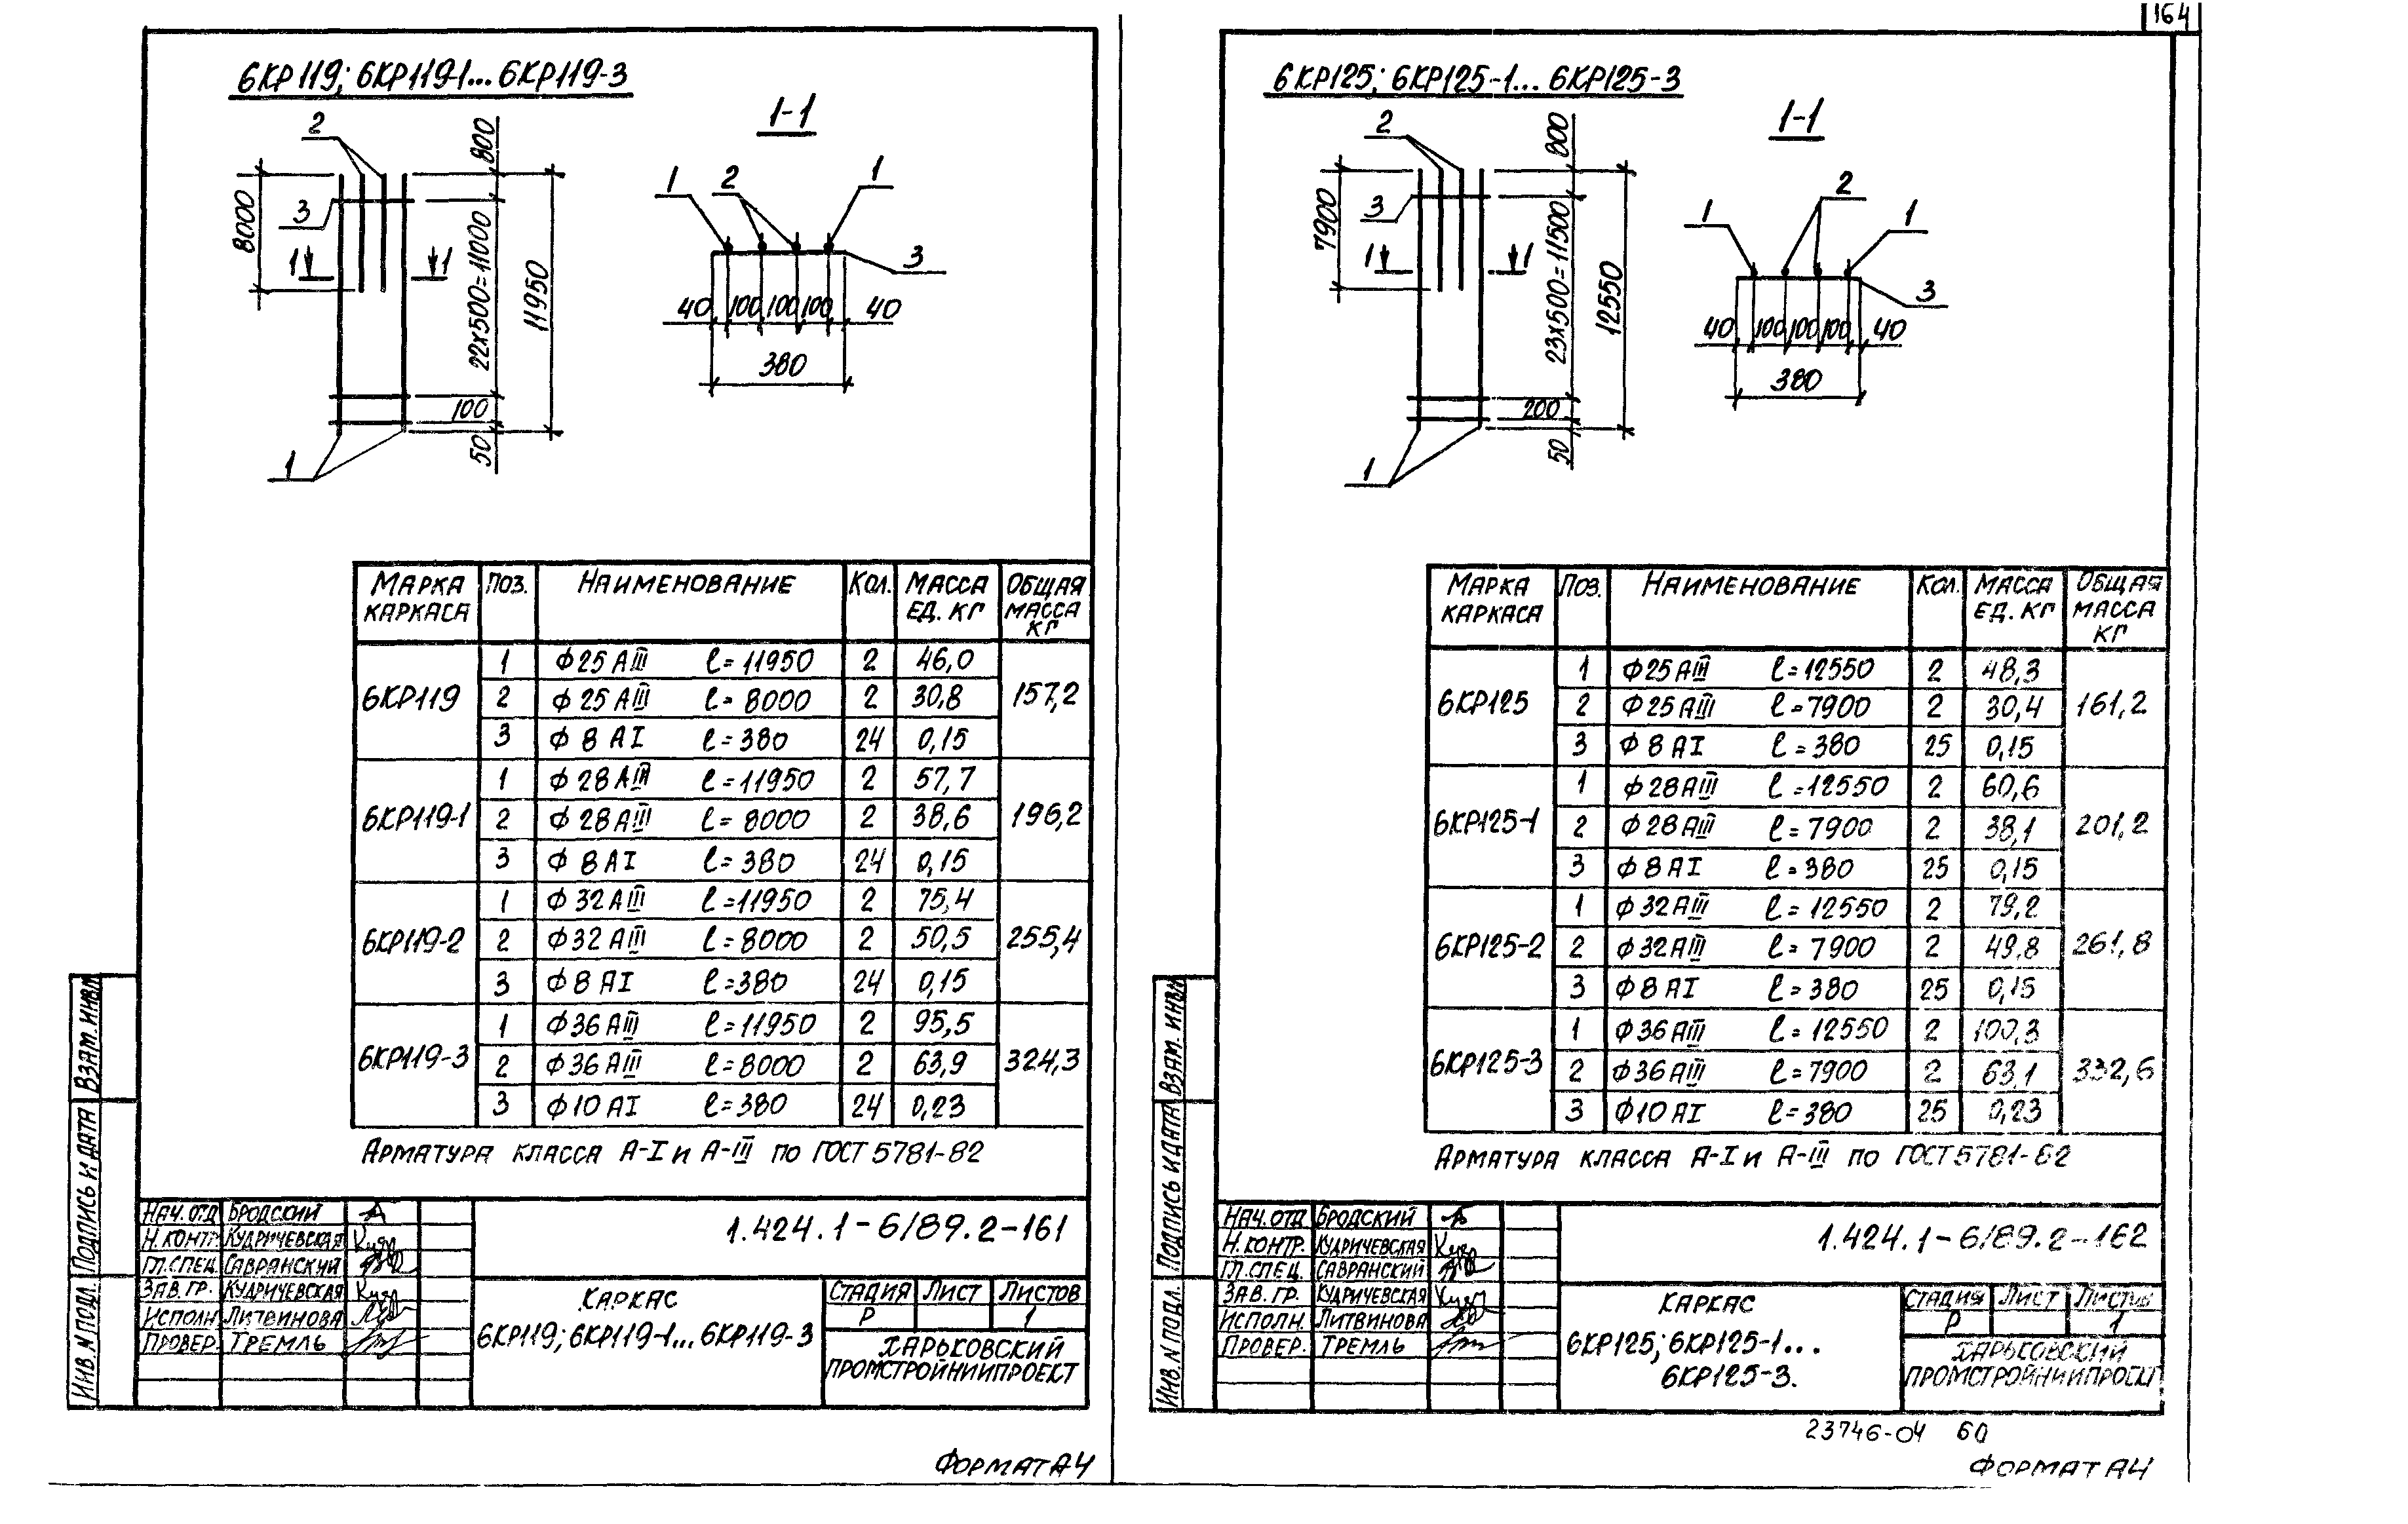 164
6КР119; 6КР119-1... 6КР119-3
1-1
2
800
8000
3
1 1
22х500=11000
11950
100
50
1
1 2 1
3
40 100 100 100 40
380
МАРКА КАРКАСА ПОЗ. НАИМЕНОВАНИЕ КОЛ. МАССА ЕД. КГ ОБЩАЯ МАССА КГ
6КР119 157,2
1 Ф25АIII ℓ=11950 2 46,0
2 Ф25АIII ℓ=8000 2 30,8
3 Ф8АI ℓ=380 24 0,15
6КР119-1 196,2
1 Ф28АIII ℓ=11950 2 57,7
2 Ф28АIII ℓ=8000 2 38,6
3 Ф8АI ℓ=380 24 0,15
6КР119-2 255,4
1 Ф32АIII ℓ=11950 2 75,4
2 Ф32АIII ℓ=8000 2 50,5
3 Ф8АI ℓ=380 24 0,15
6КР119-3 324,3
1 Ф36АIII ℓ=11950 2 95,5
2 Ф36АIII ℓ=8000 2 63,9
3 Ф10АI ℓ=380 24 0,23
АРМАТУРА КЛАССА А-I и А-III ПО ГОСТ 5781-82
НАЧ. ОТД БРОДСКИЙ
Н. КОНТР. КУДРИЧЕВСКАЯ
ГЛ. СПЕЦ. САВРАНСКИЙ
ЗАВ. ГР. КУДРИЧЕВСКАЯ
ИСПОЛН ЛИТВИНОВА
ПРОВЕР. ТРЕМЛЬ
1.424.1-6/89.2-161
КАРКАС
6КР119; 6КР119-1... 6КР119-3
СТАДИЯ ЛИСТ ЛИСТОВ
Р 1
ХАРЬКОВСКИЙ
ПРОМСТРОЙНИИПРОЕКТ
ИНВ. N ПОДЛ. ПОДПИСЬ И ДАТА ВЗАМ. ИНВ.N
ФОРМАТ А4
6КР125; 6КР125-1... 6КР125-3
1-1
2
800
7900
3
1 1
23х500=11500
12550
200
50
1
1 2 1
3
40 100 100 100 40
380
МАРКА КАРКАСА ПОЗ. НАИМЕНОВАНИЕ КОЛ. МАССА ЕД. КГ ОБЩАЯ МАССА КГ
6КР125 161,2
1 Ф25АIII ℓ=12550 2 48,3
2 Ф25АIII ℓ=7900 2 30,4
3 Ф8АI ℓ=380 25 0,15
6КР125-1 201,2
1 Ф28АIII ℓ=12550 2 60,6
2 Ф28АIII ℓ=7900 2 38,1
3 Ф8АI ℓ=380 25 0,15
6КР125-2 261,8
1 Ф32АIII ℓ=12550 2 79,2
2 Ф32АIII ℓ=7900 2 49,8
3 Ф8АI ℓ=380 25 0,15
6КР125-3 332,6
1 Ф36АIII ℓ=12550 2 100,3
2 Ф36АIII ℓ=7900 2 63,1
3 Ф10АI ℓ=380 25 0,23
АРМАТУРА КЛАССА А-I и А-III ПО ГОСТ 5781-82
НАЧ. ОТД БРОДСКИЙ
Н. КОНТР. КУДРИЧЕВСКАЯ
ГЛ. СПЕЦ. САВРАНСКИЙ
ЗАВ. ГР. КУДРИЧЕВСКАЯ
ИСПОЛН. ЛИТВИНОВА
ПРОВЕР. ТРЕМЛЬ
1.424.1-6/89.2-162
КАРКАС
6КР125; 6КР125-1...
6КР125-3.
СТАДИЯ ЛИСТ ЛИСТОВ
Р 1
ХАРЬКОВСКИЙ
ПРОМСТРОЙНИИПРОЕКТ
ИНВ. N ПОДЛ. ПОДПИСЬ И ДАТА ВЗАМ. ИНВ.N
23746-04 60
ФОРМАТ А4